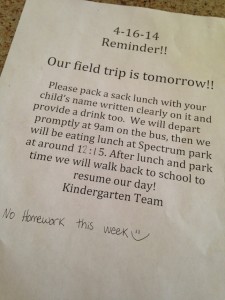 4-16-14
Reminder!!
Our field trip is tomorrow!!
Please pack a sack lunch with your
child's name written clearly on it and
provide a drink too. We will depart
promptly at 9am on the bus, then we
will be eating lunch at Spectrum park
at around 12:15. After lunch and park
time we will walk back to school to
resume our day!
Kindergarten Team
No Homework this week